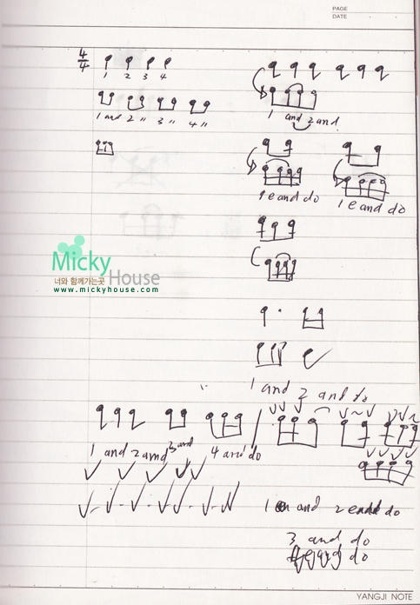 PAGE
DATE
4/4
1 2 3 4
1 and 2 " 3 " 4 "
1 and 2 and
1 e and do
1 e and do
Micky House
너와 함께가는곳
www.mickyhouse.com
1 and 2 and do
1 and 2 and 3 and 4 and do
1 e and 2 e and do
3 and do
do
YANGJI NOTE